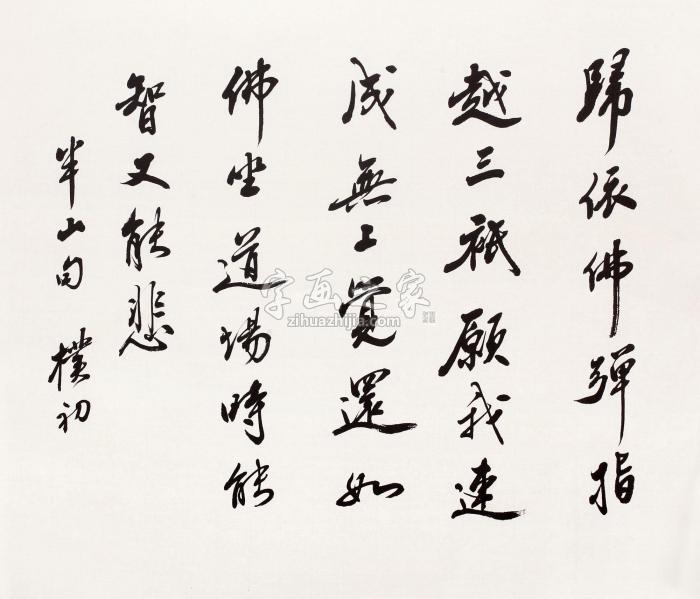 歸依佛彈指
越三祇願我速
成無上覺還如
佛坐道場時能
智又能悲
半山句 樸初
字画之家
zihuazhijia.com